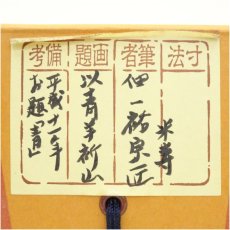 寸法
筆者
米寿
但一祐実匠
画題
以青羊祈山
備考
平成十一年
お題「青」